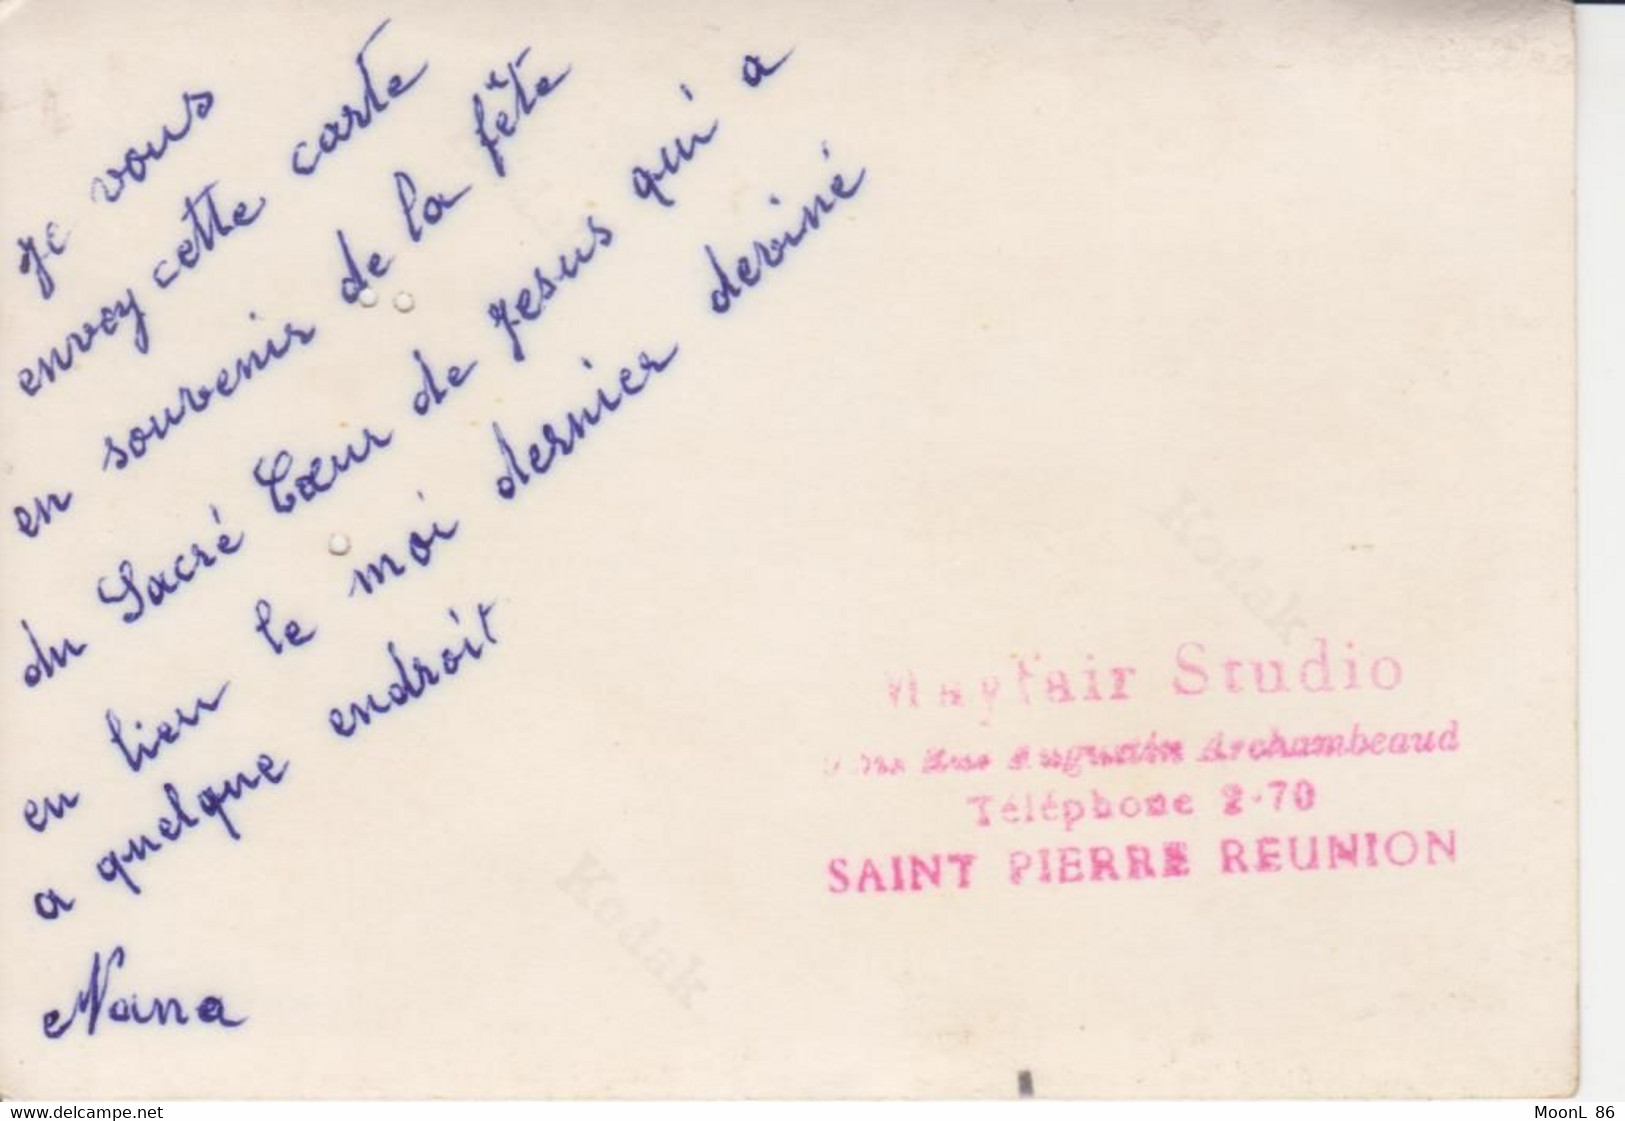 Je vous
envoy cette carte
en souvenir de la fête
du Sacré Cœur de Jesus qui a
eu lieu le moi dernier deviné
a quelque endroit
Nana
Kodak
Kodak
Mayfair Studio
Rue Augustin Archambeaud
Téléphone 2-70
SAINT PIERRE REUNION
www.delcampe.net
MoonL 86